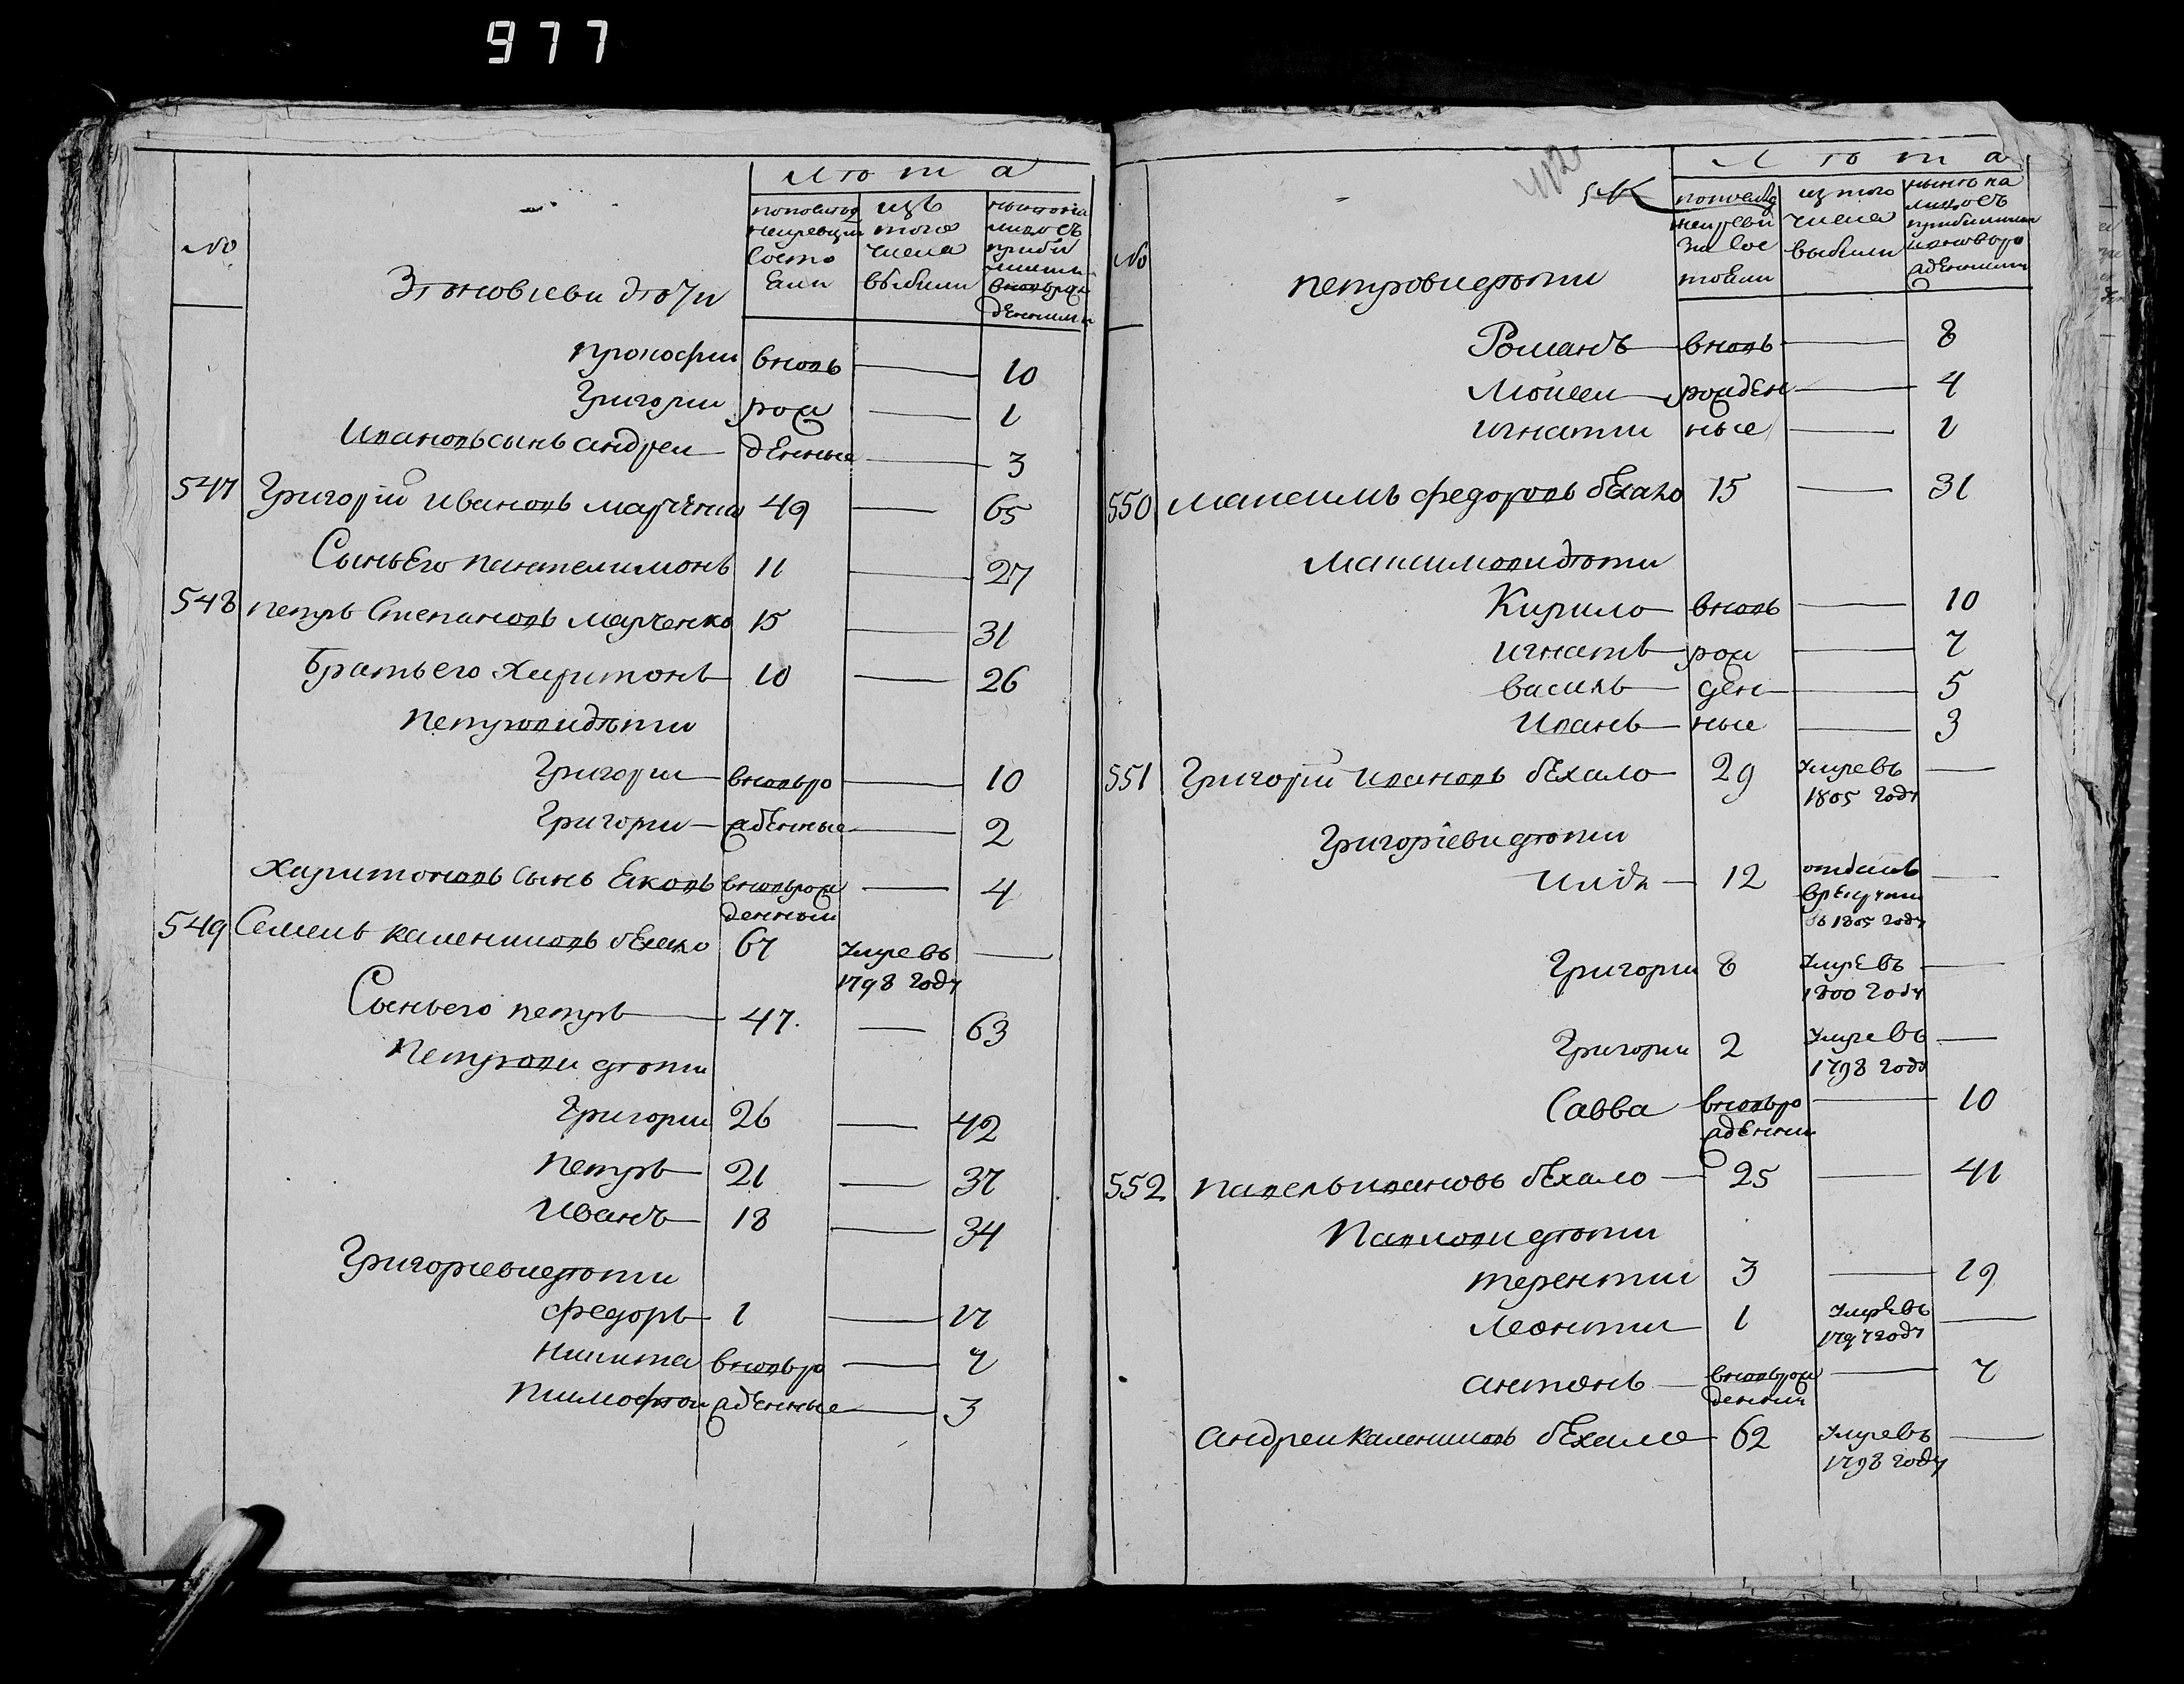 977
Лѣта
№
по последней ревизіи состояли
изъ того числа выбыли
ныне на лицо съ прибылыми и вновь рожденными
Зѣновіеви дѣти
Прокофии вновь — 10
Григории рож — 1
Ивановъ сынъ андреи денные — 3
547 Григорій Ивановъ Марченко 49 — 65
Сынъ Его пантелимонъ 11 — 27
548 петръ Степановъ Марченко 15 — 31
Братъ его Харитонъ 10 — 26
Петрови дѣти
Григории вновь ро — 10
Григории жденные — 2
Харитоновъ сынъ Яковъ вновь рож — 4
денныи
549 Семенъ калениковъ бЕхало 67 Умре въ —
1798 году
Сынъ его петръ 47. — 63
Петрови дѣти
Григории 26 — 42
Петръ 21 — 37
Иванъ 18 — 34
Григориеви дѣти
Федоръ 1 — 17
Никита вновь ро — 7
Тимофѣи жденные — 3
Лѣта
№
по последней ревизіи состояли
из того числа выбыли
ныне на лицо съ прибылыми и вновь рожденными
петрови дѣти
Романъ вновь — 8
Мойсеи рожден — 4
игнатии ные — 1
550 Максимъ федоровъ бЕхало 15 — 31
Максимови дѣти
Кирило вновь — 10
игнатъ рож — 7
василь ден — 5
Иванъ ные — 3
551 Григорій Ивановъ бЕхало 29 Умре въ —
1805 году
Григоріеви дѣти
Илія 12 отданъ —
в рЕкруты
въ 1805 году
Григории 8 УмрЕ въ —
1800 году
Григории 2 Умре въ —
1798 году
Савва вновь ро — 10
жденни
552 Павелъ Ивановъ бЕхало 25 — 41
Павлови дѣти
терентии 3 — 19
Леонтии 1 Умре въ —
1797 году
антонъ вновь рож — 7
денныи
андреи калениковъ бЕхало 62 Умре въ —
1798 году